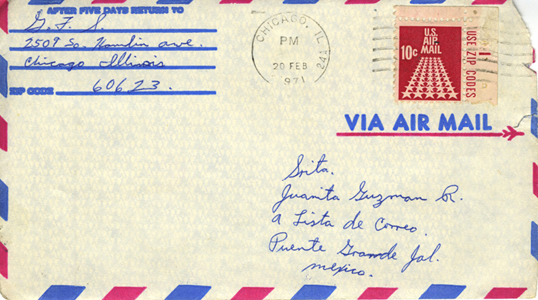 AFTER FIVE DAYS RETURN TO
G. F. S.
2509 So. Hamlin ave.
Chicago Illinois
ZIP CODE 60623.
CHICAGO, IL
PM
20 FEB
1971
U.S.
AIR
MAIL
10c
USE ZIP CODES
VIA AIR MAIL
Srita.
Juanita Guzman R.
a Lista de Correo.
Puente Grande Jal.
mexico.